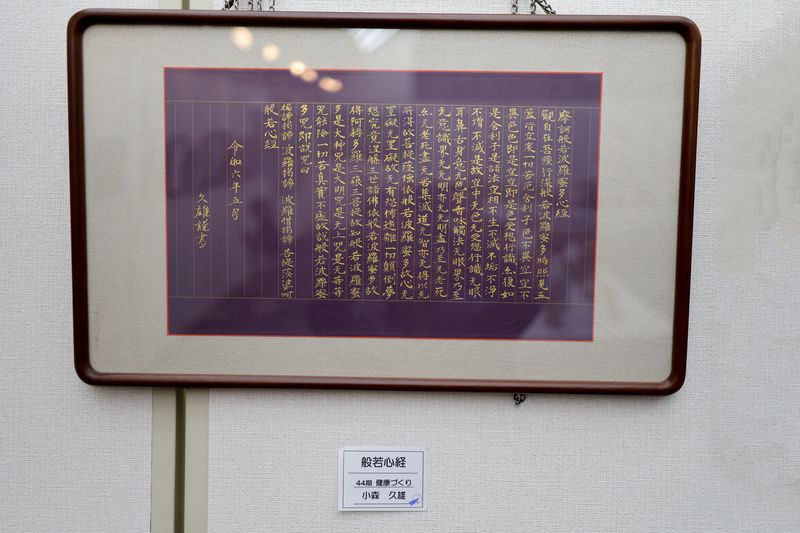 摩訶般若波羅蜜多心経
觀自在菩薩行深般若波羅蜜多時照見五
蘊皆空度一切苦厄舎利子色不異空空不
異色色即是空空即是色受想行識亦復如
是舎利子是諸法空相不生不滅不垢不淨
不増不減是故空中无色无受想行識无眼
耳鼻舌身意无色聲香味觸法无眼界乃至
无意識界无无明亦无无明盡乃至无老死
亦无老死盡无苦集滅道无智亦无得以无
所得故菩提薩埵依般若波羅蜜多故心无
罣礙无罣礙故无有恐怖遠離一切顛倒夢
想究竟涅槃三世諸佛依般若波羅蜜多故
得阿耨多羅三藐三菩提故知般若波羅蜜
多是大神咒是大明咒是无上咒是无等等
咒能除一切苦真實不虚故説般若波羅蜜
多咒即説咒曰
揭諦揭諦 波羅揭諦 波羅僧揭諦 菩提莎婆呵
般若心経
令和六年五月
久雄謹書
般若心経
44期 健康づくり
小森 久雄